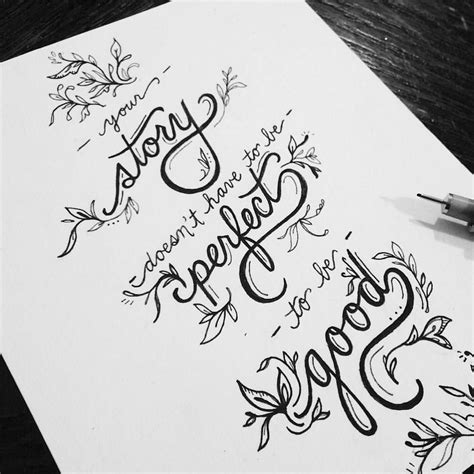 - your -
story
- doesn't have to be -
perfect
- to be -
good